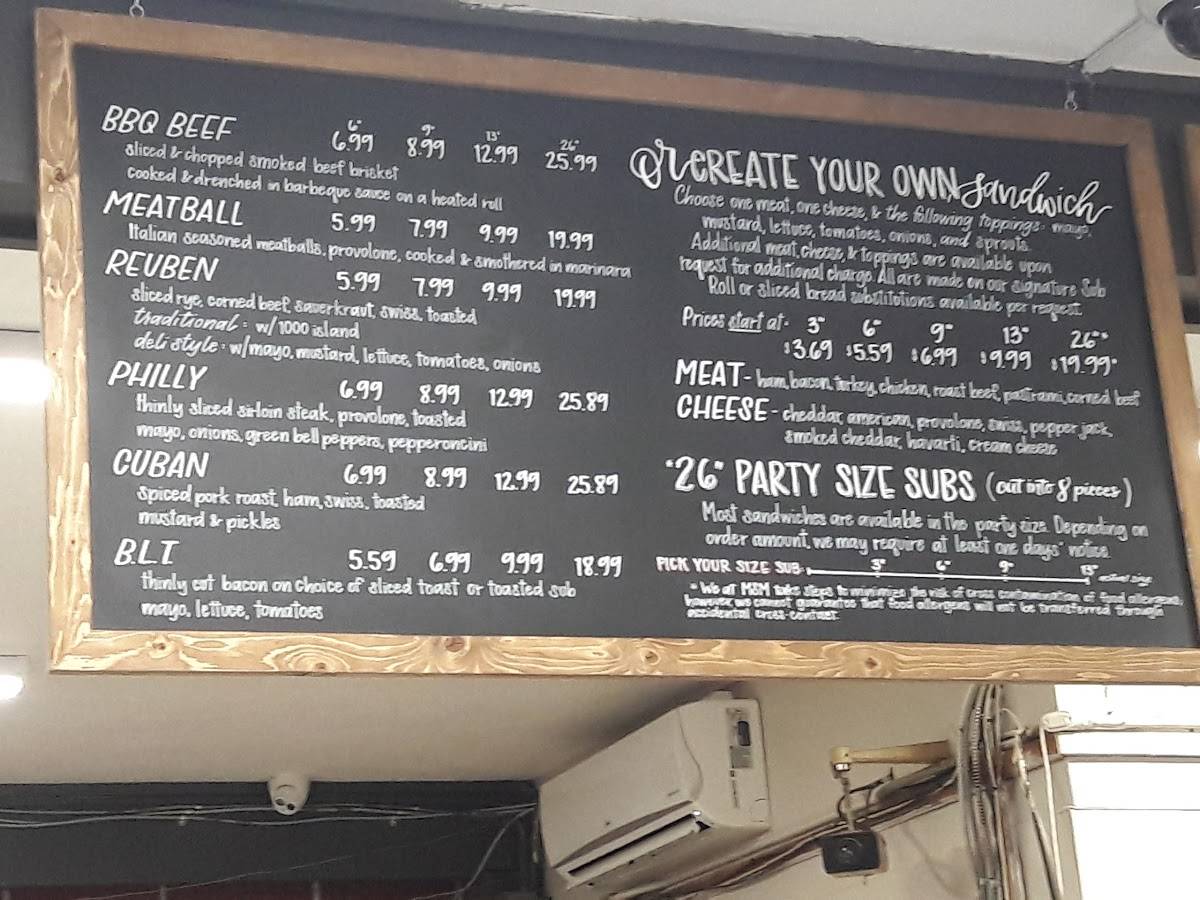 BBQ BEEF 6" 6.99 9" 8.99 13" 12.99 26" 25.99
sliced & chopped smoked beef brisket
cooked & drenched in barbeque sauce on a heated roll
MEATBALL 5.99 7.99 9.99 19.99
Italian seasoned meatballs, provolone, cooked & smothered in marinara
REUBEN 5.99 7.99 9.99 19.99
sliced rye, corned beef, sauerkraut, swiss, toasted
traditional: w/1000 island
deli style: w/mayo, mustard, lettuce, tomatoes, onions
PHILLY 6.99 8.99 12.99 25.89
thinly sliced sirloin steak, provolone, toasted
mayo, onions, green bell peppers, pepperoncini
CUBAN 6.99 8.99 12.99 25.89
spiced pork roast, ham, swiss, toasted
mustard & pickles
B.L.T 5.59 6.99 9.99 18.99
thinly cut bacon on choice of sliced toast or toasted sub
mayo, lettuce, tomatoes
or CREATE YOUR OWN sandwich
Choose one meat, one cheese, & the following toppings: mayo,
mustard, lettuce, tomatoes, onions, and sprouts.
Additional meat, cheese, & toppings are available upon
request for additional charge. All are made on our signature Sub
Roll or sliced bread substitutions available per request.
Prices start at: 3" 6" 9" 13" 26"*
$3.69 $5.59 $6.99 $9.99 $19.99*
MEAT - ham, bacon, turkey, chicken, roast beef, pastrami, corned beef
CHEESE - cheddar, american, provolone, swiss, pepper jack,
smoked cheddar, havarti, cream cheese
*26" PARTY SIZE SUBS (cut into 8 pieces)
Most sandwiches are available in the party size. Depending on
order amount, we may require at least one days' notice.
PICK YOUR SIZE SUB: 3" 6" 9" 13" actual size
* We at M&M take steps to minimize the risk of cross contamination of food allergens,
however, we cannot guarantee that food allergens will not be transferred through
accidental cross-contact.